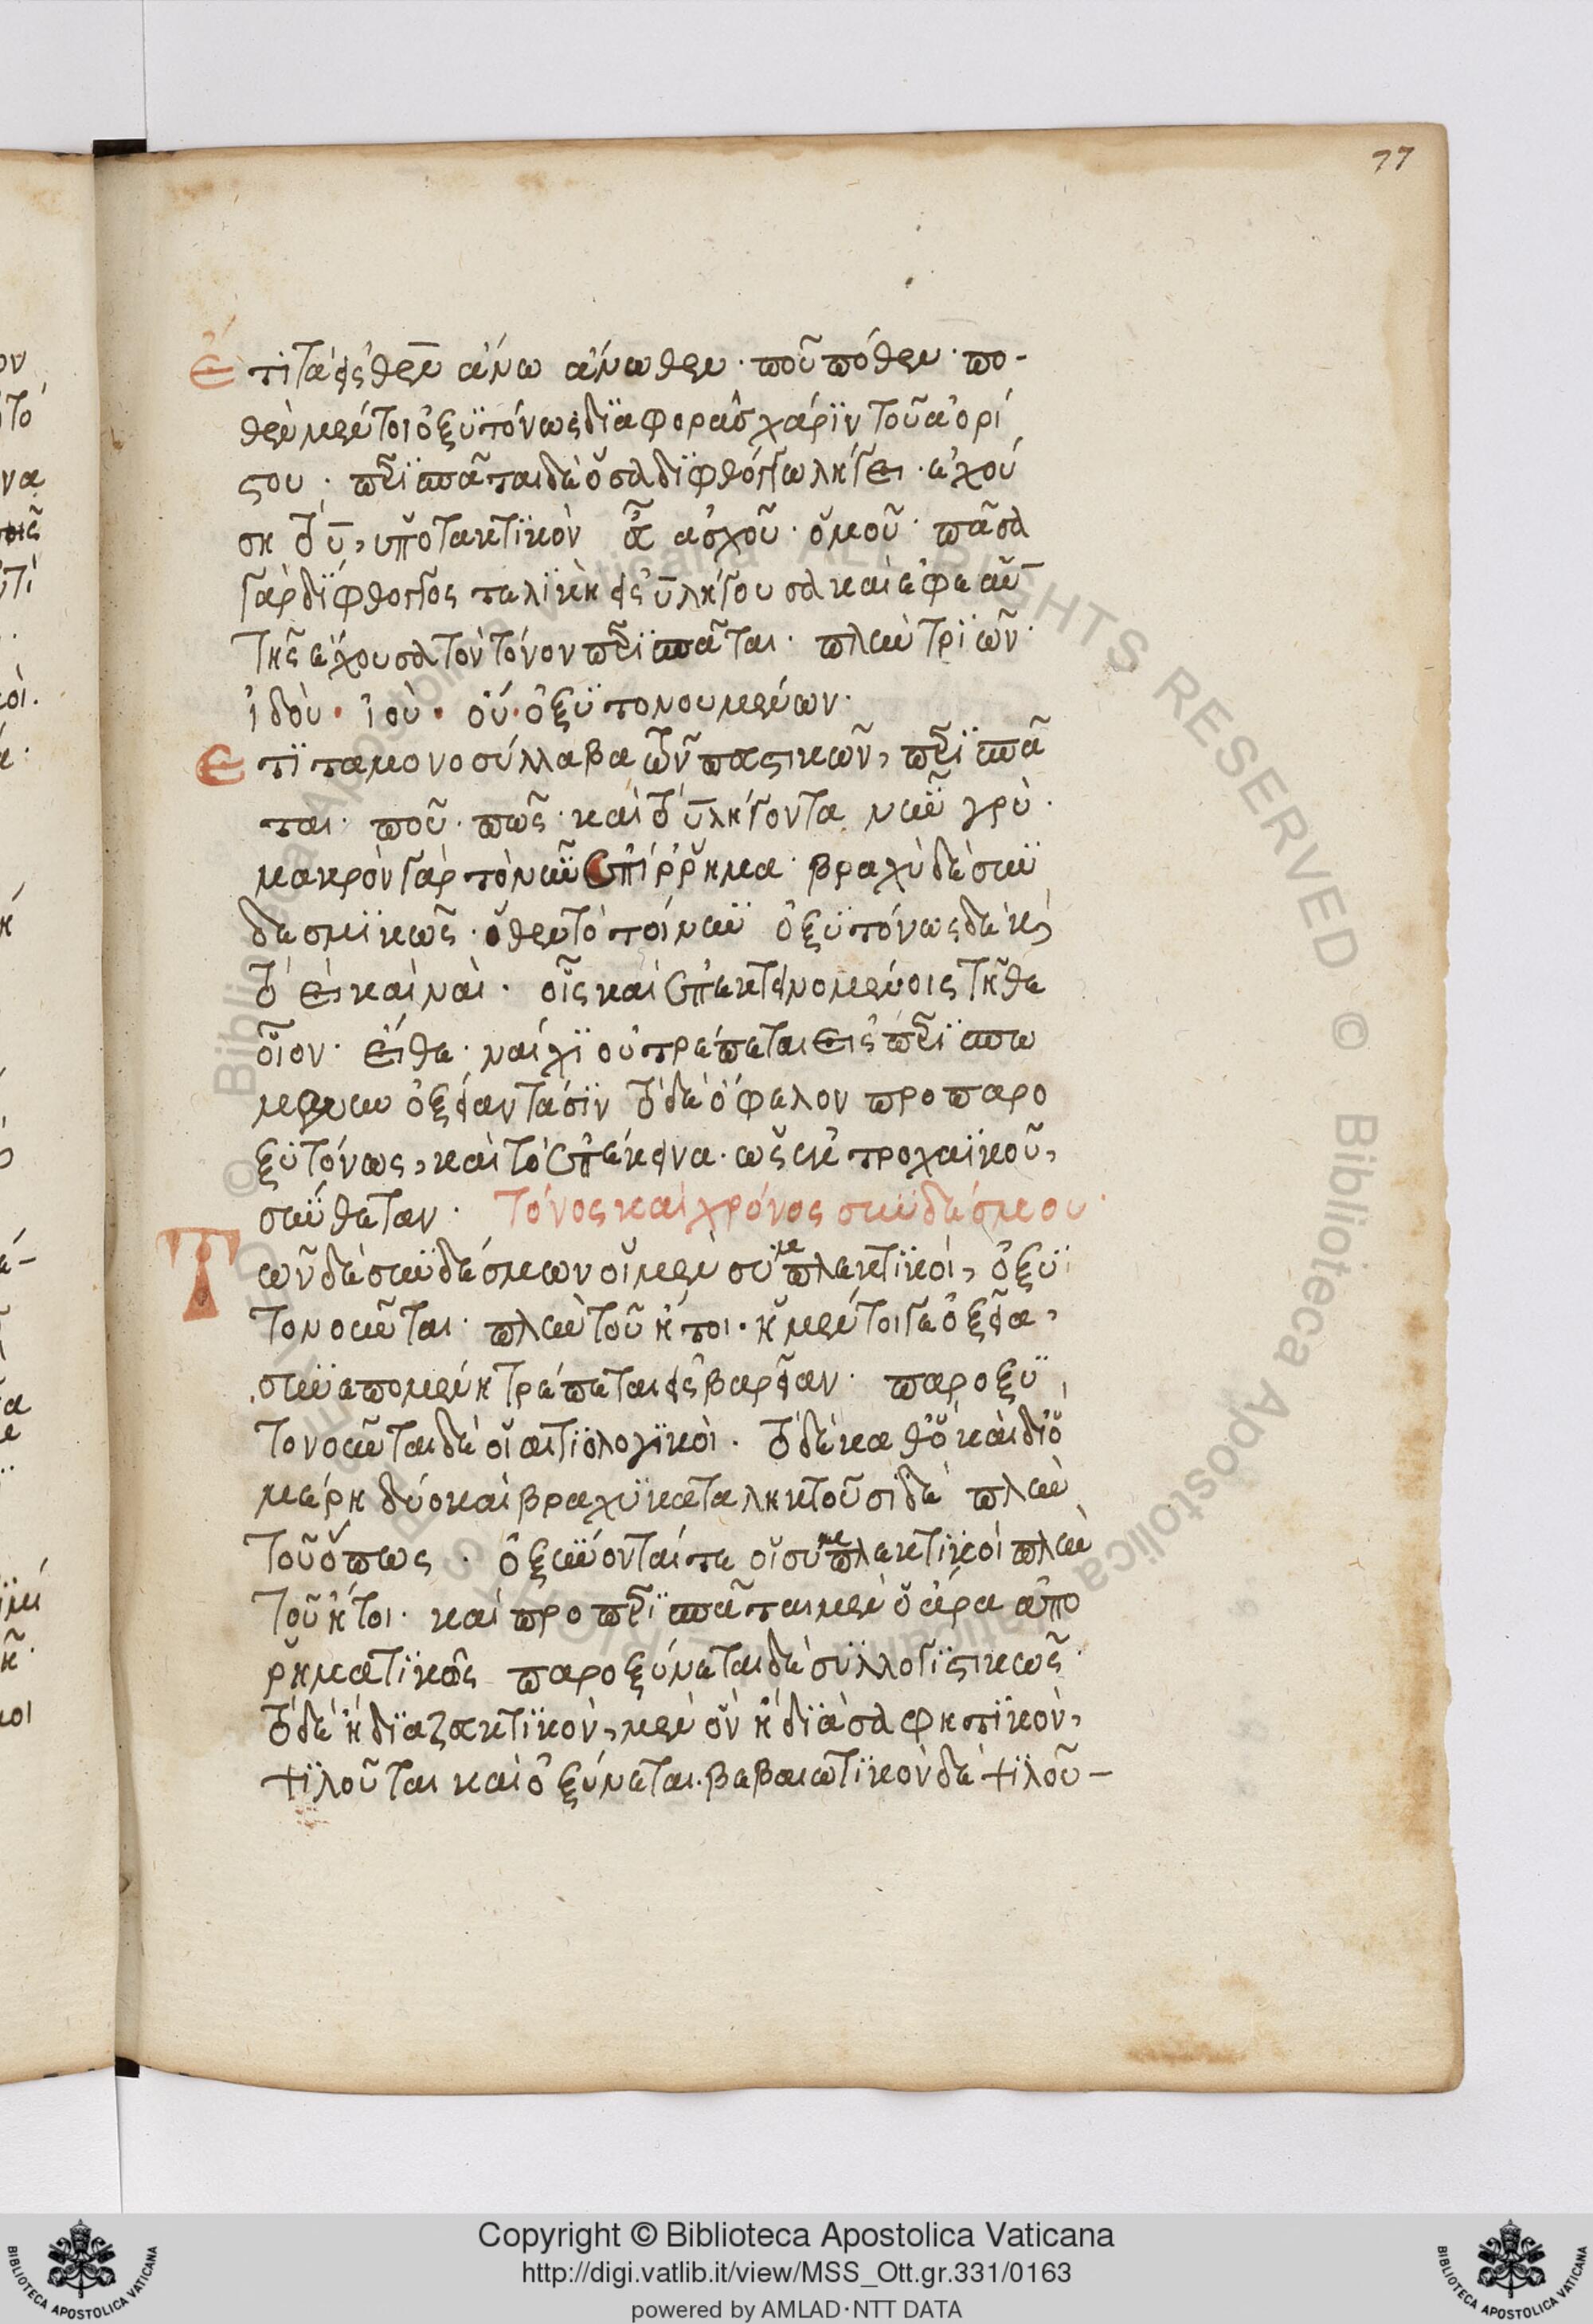 77
Ἔτι τὰ εἰς θεν ἄνω ἄνωθεν· ποῦ πόθεν· πο-
θὲν μέντοι ὀξυτόνως διαφορᾶς χάριν τοῦ ἀορί
στου· περισπᾶται δὲ ὅσα διφθόγγω λήγει· ἐχού
ση τὸ υ, ὑποτακτικὸν ἀγχοῦ· ὁμοῦ· πᾶσα
γὰρ δίφθογγος τελικὴ εἰς υ λήγουσα καὶ ἐφ' ἑαυ
τῆς ἔχουσα τὸν τόνον περισπᾶται· πλὴν τριῶν·
ἰδού· ἰού· οὐ· ὀξυτονουμένων·
Ἔτι τὰ μονοσύλλαβα τῶν παστικῶν, περισπᾶ
ται· ποῦ· πῶς· καὶ τὸ υ λήγοντα νῦν γρύ·
μακρὸν γὰρ τὸ νῦν ἐπίρρημα· βραχὺ δὲ συν
δεσμικῶς· ὅθεν τὸ τοίνυν ὀξυτόνως δὲ καὶ
τὸ εἰ καὶ ναί· οἷς καὶ ἐπεκτεινομένοις τῆ θε
οἷον· εἴθε· ναίχι οὐ τρέπεται εἰς περισπω
μένην ὀξεῖαν τάσιν τὸ δὲ ὄφελον προπαρο
ξυτόνως, καὶ τὸ ἐπέκεινα· ὡς ἐκ τροχαϊκοῦ,
συνθέτων· Τόνος καὶ χρόνος συνδέσμου·
Τῶν δὲ συνδέσμων οἱ μὲν συμπλεκτικοί, ὀξυ
τονοῦνται· πλὴν τοῦ ἤτοι· ἡ μέντοι γε ὀξεῖα,
συνεπομένη τρέπεται εἰς βαρεῖαν· παροξυ
τονοῦνται δὲ οἱ αἰτιολογικοί· τὸ δὲ καθὸ καὶ διὸ
μέρη δύο καὶ βραχυκαταληκτοῦσι δὲ πλὴν
τοῦ ὅπως· ὀξύνονταί τε οἱ συμπλεκτικοὶ πλὴν
τοῦ ἤτοι· καὶ προπερισπᾶται μὲν ὁ ἆρα ἀπο
ρηματικῶς παροξύνεται δὲ συλλογιστικῶς·
τὸ δὲ ἢ διαζευκτικόν, μὲν οὖν ἢ διασαφητικόν,
ψιλοῦται καὶ ὀξύνεται· βεβαιωτικὸν δὲ ψιλοῦ-
Copyright © Biblioteca Apostolica Vaticana
http://digi.vatlib.it/view/MSS_Ott.gr.331/0163
powered by AMLAD·NTT DATA